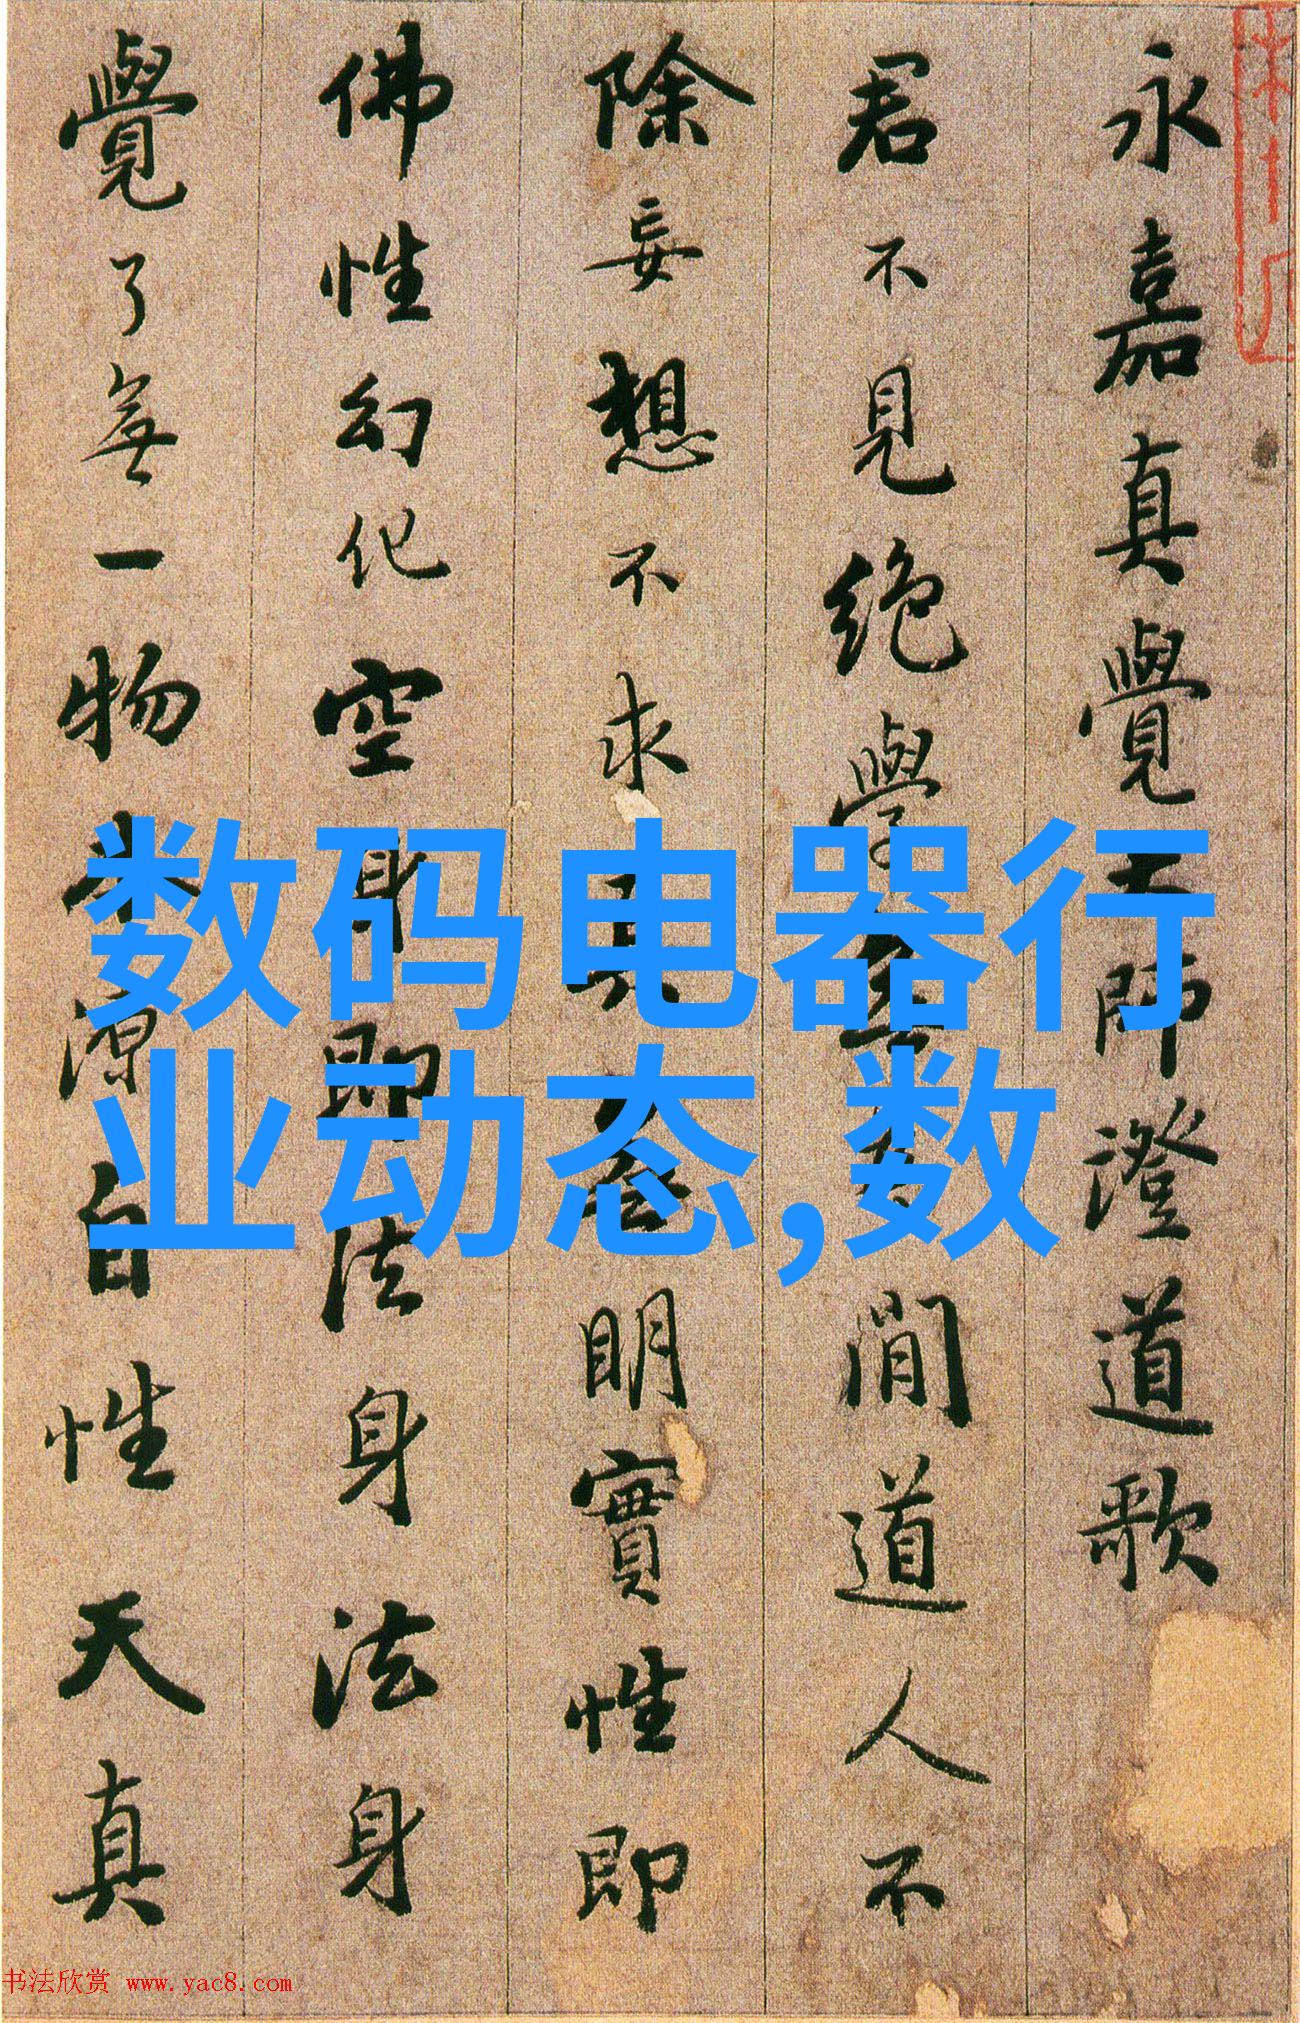 永嘉真覺大師澄道歌
君不見絶學無為閒道人不
除妄想不求真无明實性即
佛性幻化空身即法身法身
覺了無一物本源自性天真
数码电器行
业动态,数
书法欣赏 www.yac8.com